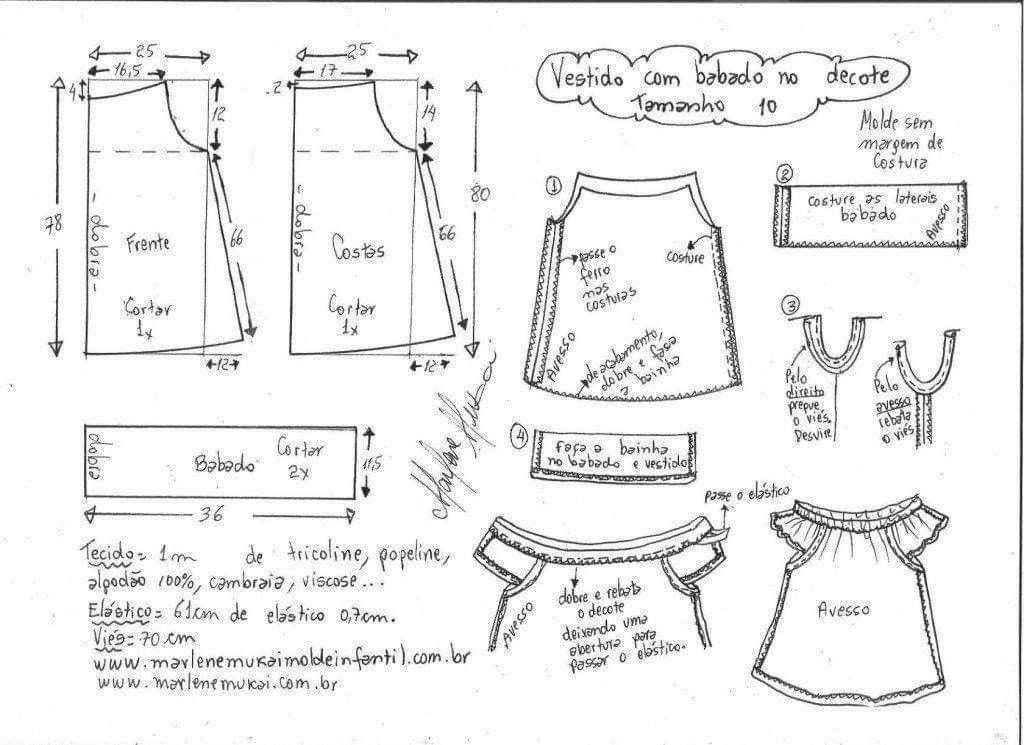 Vestido com babado no decote
Tamanho 10
Molde sem
margem de
costura
25
16,5
4
12
78
- dobra -
Frente
66
Cortar
1x
12
25
17
2
14
80
- dobra -
Costas
66
Cortar
1x
12
dobra
Babado
Cortar
2x
11,5
36
Tecido = 1m de tricoline, popeline,
algodão 100%, cambraia, viscose...
Elástico = 61cm de elástico 0,7cm.
Viés = 70 cm
www.marlenemukaimoldeinfantil.com.br
www.marlenemukai.com.br
1
passe o
ferro
nas
costuras
costure
Avesso
de acabamento,
dobre e faça
a bainha
2
costure as laterais
babado
Avesso
3
Pelo
direito
pregue
o viés.
Desvire
Pelo
avesso
rebata
o viés
4
faça a bainha
no babado e vestido
passe o elástico
Avesso
dobre e rebata
o decote
deixando uma
abertura para
passar o elástico.
Avesso